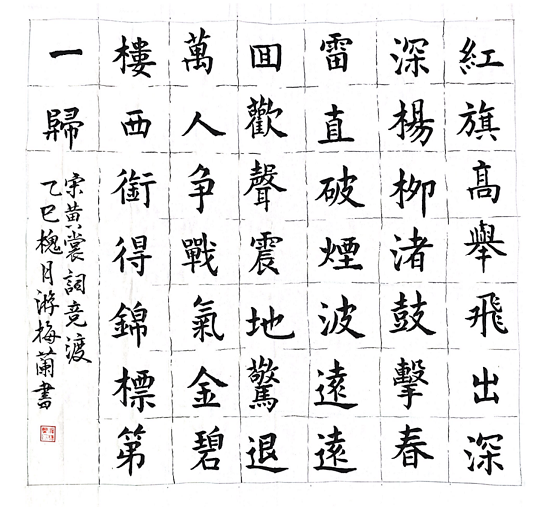 紅旗髙舉飛出深
深楊柳渚鼓擊春
雷直破煙波遠遠
囬歡聲震地驚退
萬人争戰氣金碧
樓西銜得錦標第
一歸
宋黄裳詞竞渡
乙巳槐月游梅蘭書